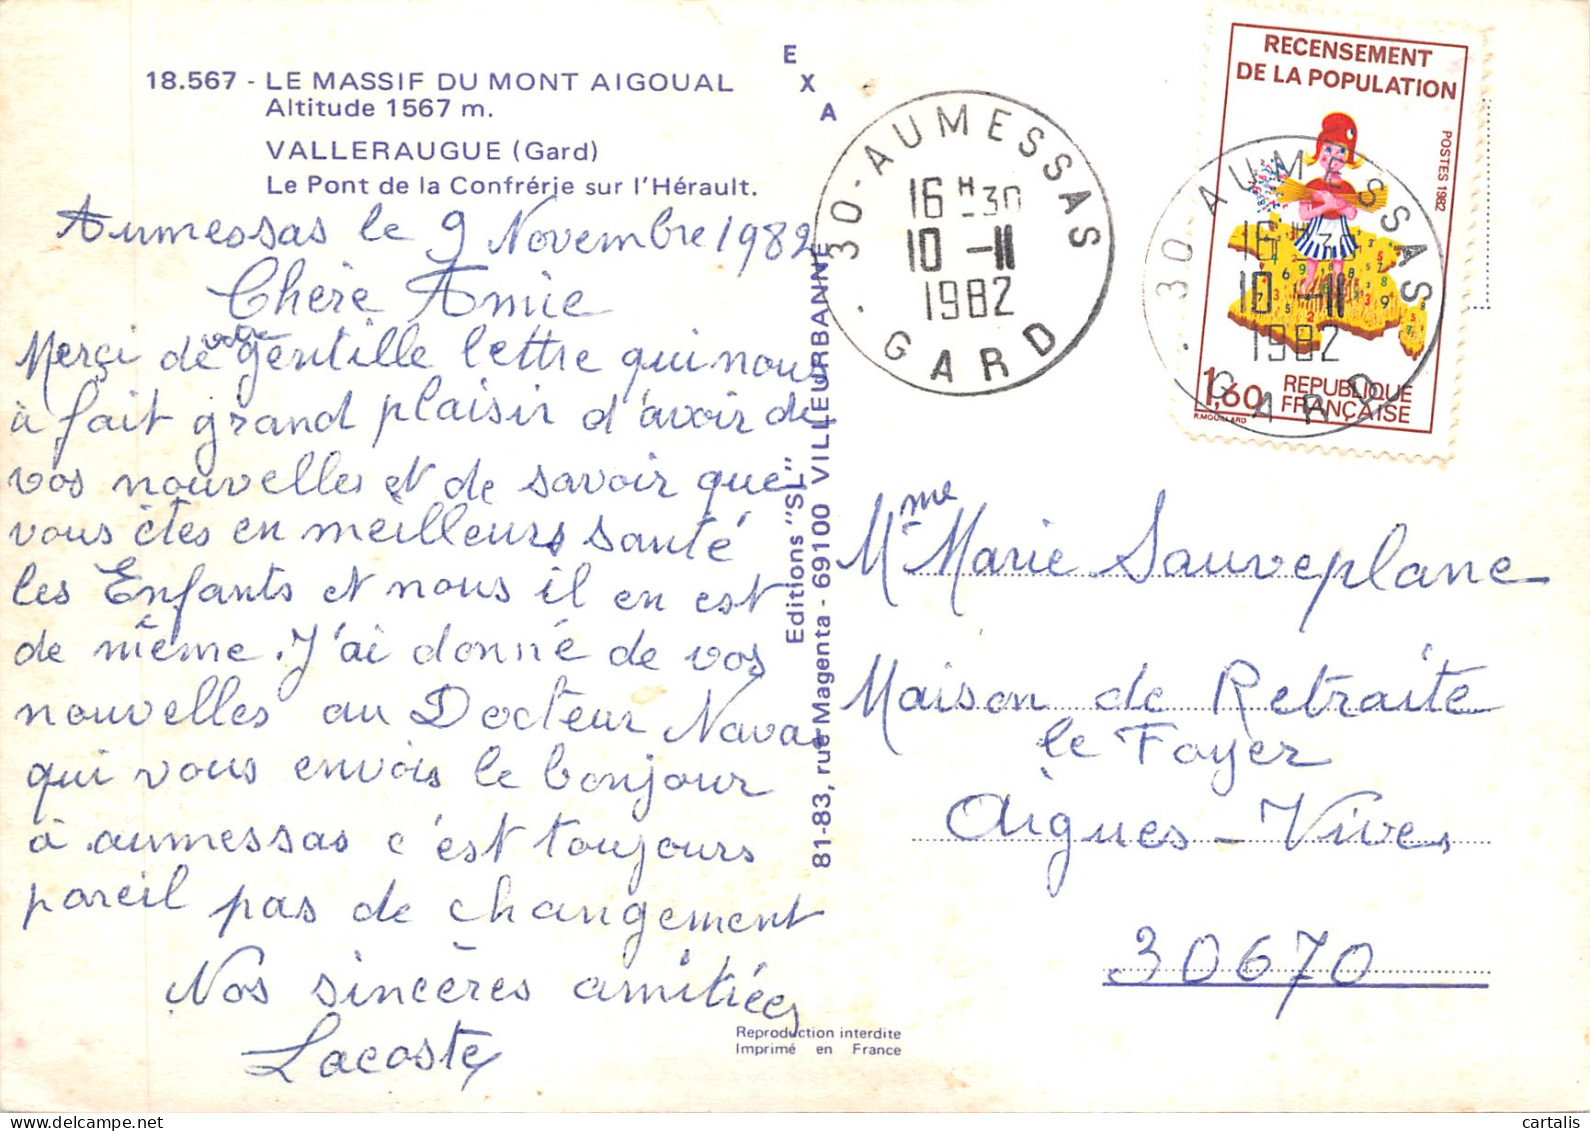 18.567 - LE MASSIF DU MONT AIGOUAL
Altitude 1567 m.
VALLERAUGUE (Gard)
Le Pont de la Confrérie sur l'Hérault.
Aumessas le 9 Novembre 1982
Chère Amie
Merçi de votre gentille lettre qui nous
à fait grand plaisir d'avoir de
vos nouvelles et de savoir que
vous êtes en meilleurs santé
les Enfants et nous il en est
de même. J'ai donné de vos
nouvelles au Docteur Navas
qui vous envois le bonjour
à aumessas c'est toujours
pareil pas de changement
Nos sincères amitiées
Lacoste
EXA
Editions "SL"
81-83, rue Magenta - 69100 VILLEURBANNE
Reproduction interdite
Imprimé en France
30 - AUMESSAS
16 H 30
10 - 11
1982
GARD
RECENSEMENT
DE LA POPULATION
POSTES 1982
1,60
REPUBLIQUE
FRANÇAISE
R.MOUILLARD
30 - AUMESSAS
16 H 30
10 - 11
1982
GARD
Mme Marie Sauveplane
Maison de Retraite
le Foyer
Aigues-Vives
30670
cartalis
www.delcampe.net